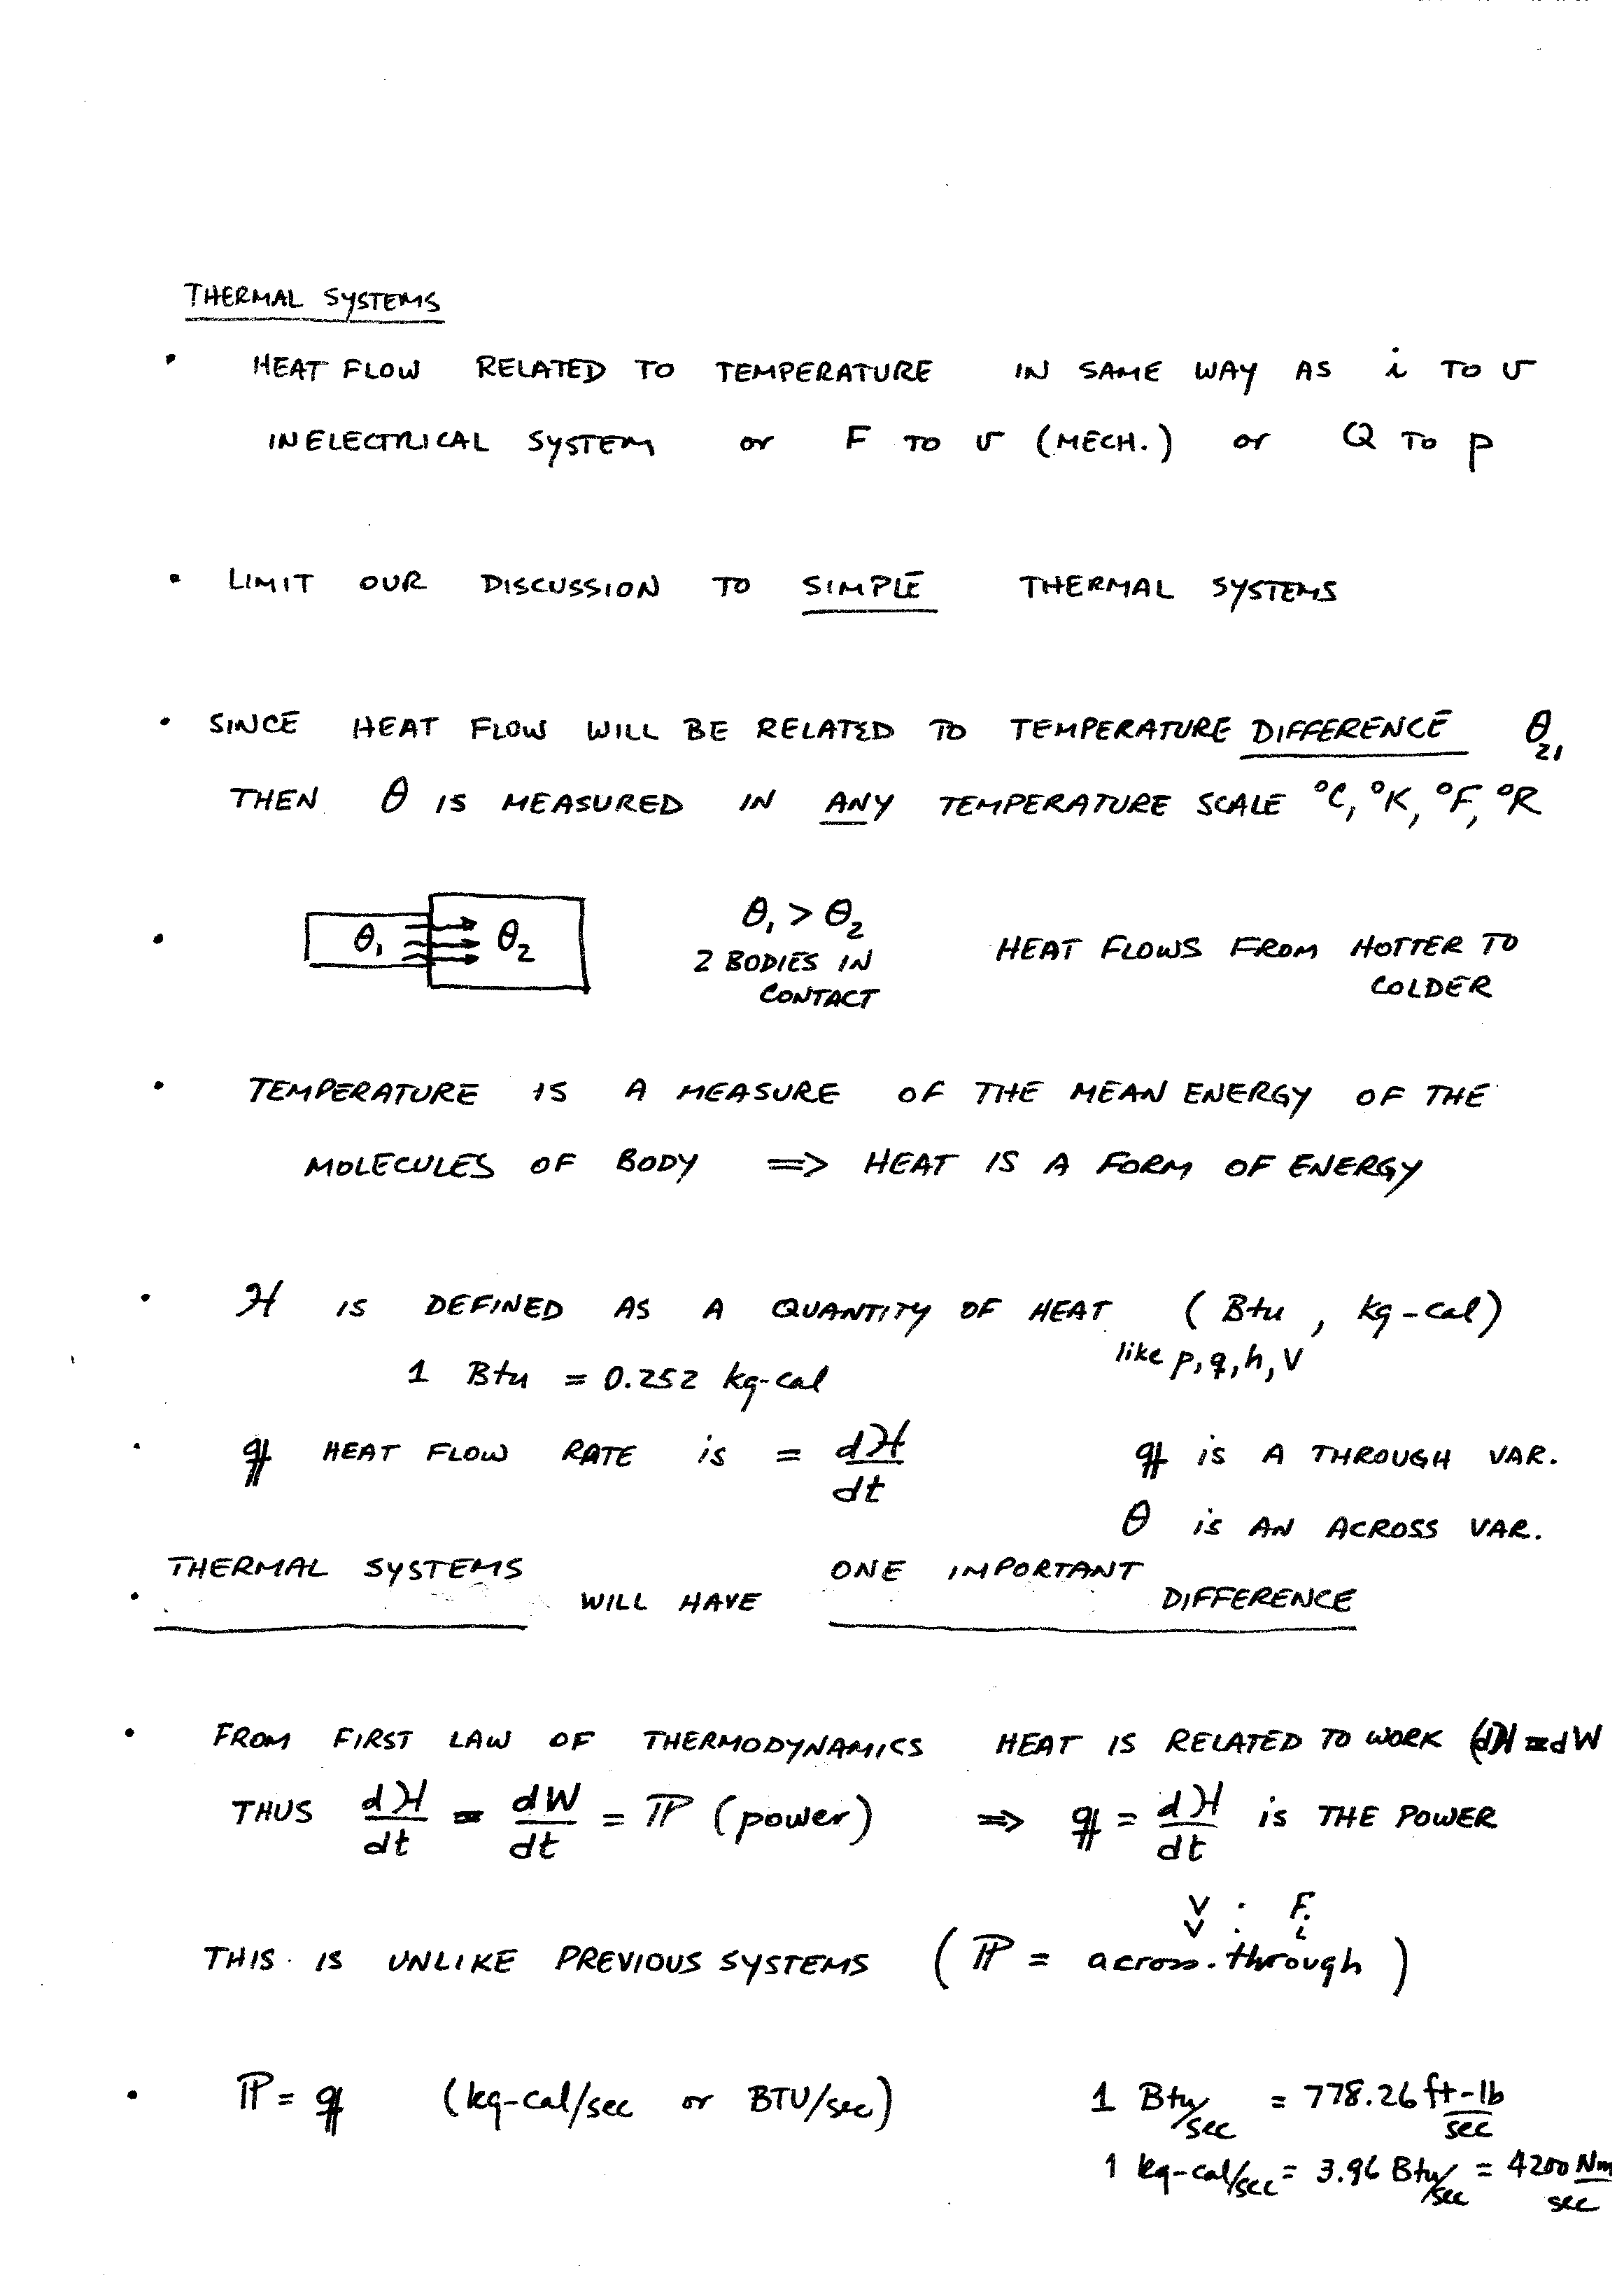 THERMAL SYSTEMS
• HEAT FLOW RELATED TO TEMPERATURE IN SAME WAY AS i TO v
IN ELECTRICAL SYSTEM or F TO v (MECH.) or Q TO p
• LIMIT OUR DISCUSSION TO SIMPLE THERMAL SYSTEMS
• SINCE HEAT FLOW WILL BE RELATED TO TEMPERATURE DIFFERENCE θ₂₁
THEN θ IS MEASURED IN ANY TEMPERATURE SCALE °C, °K, °F, °R
• θ₁ θ₂ θ₁ > θ₂
2 BODIES IN CONTACT
HEAT FLOWS FROM HOTTER TO COLDER
• TEMPERATURE IS A MEASURE OF THE MEAN ENERGY OF THE
MOLECULES OF BODY => HEAT IS A FORM OF ENERGY
• ℋ IS DEFINED AS A QUANTITY OF HEAT (Btu, kg-cal)
like p, q, h, V
1 Btu = 0.252 kg-cal
• q HEAT FLOW RATE is = dℋ/dt q is A THROUGH VAR.
θ is AN ACROSS VAR.
• THERMAL SYSTEMS WILL HAVE ONE IMPORTANT DIFFERENCE
• FROM FIRST LAW OF THERMODYNAMICS HEAT IS RELATED TO WORK (dℋ = dW
THUS dℋ/dt = dW/dt = ℙ (power) => q = dℋ/dt is THE POWER
V · F
v · i
THIS IS UNLIKE PREVIOUS SYSTEMS (ℙ = across · through)
• ℙ = q (kg-cal/sec or BTU/sec) 1 Btu/sec = 778.26 ft-lb/sec
1 kg-cal/sec = 3.96 Btu/sec = 4200 Nm/sec